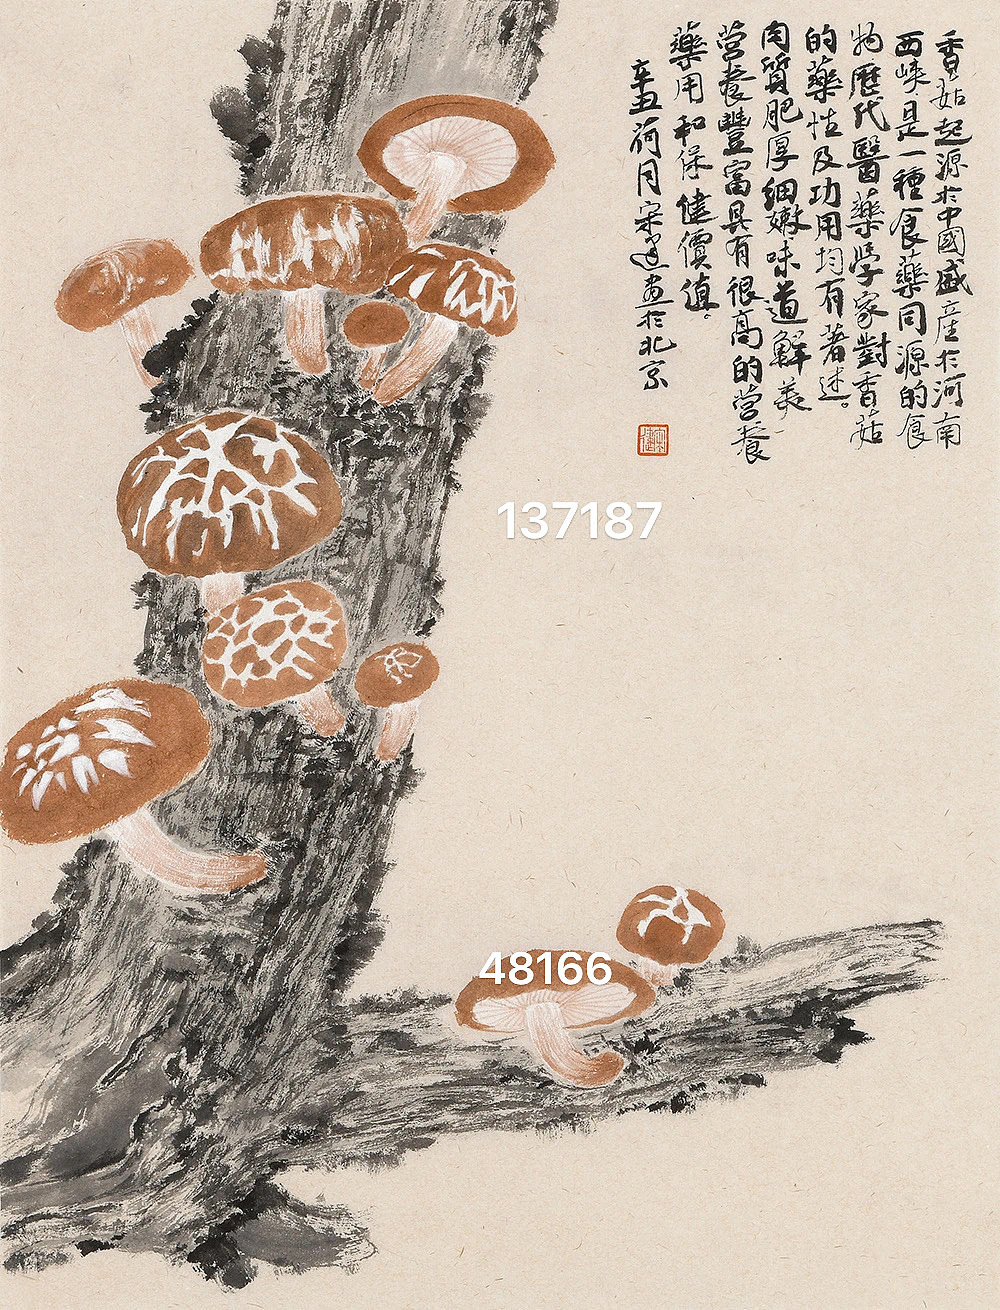 香菇起源於中國盛産於河南
西峽是一種食藥同源的食
物歷代醫藥学家對香菇
的藥性及功用均有著述。
肉質肥厚细嫩味道鮮美
营養豐富具有很高的营養
藥用和保健價值。
辛丑荷月宋建画於北京
137187
48166